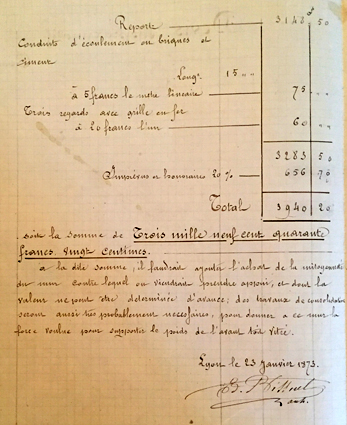 Report 3148 50
Conduits d'écoulement en briques et
ciment
Longr 15 " "
à 5 francs le mètre linéaire 75 " "
Trois regards avec grille en fer
à 20 francs l'un 60 " "
3283 50
Imprévus et honoraires 20% 656 70
Total 3940 20
soit la somme de Trois mille neuf cent quarante
francs. vingt centimes.
a la dite somme, il faudrait ajouter l'achat de la mitoyenneté
du mur contre lequel on viendrait prendre appui, et dont la
valeur ne peut être déterminée d'avance; des travaux de consolidation
seront aussi très probablement nécessaires, pour donner à ce mur la
force voulue pour supporter le poids de l'avant toit vitré.
Lyon le 23 Janvier 1873.